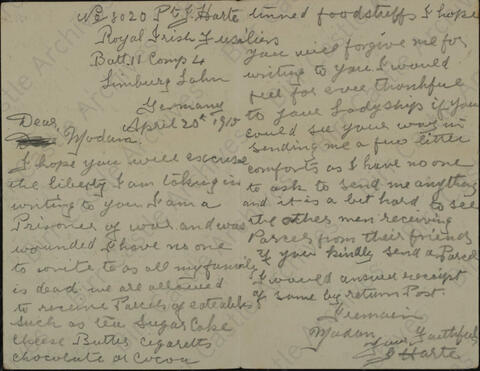 No 8020 Pt J. Harte
Royal Irish Fusiliers
Batt. 11 Comp 4
Limburg Lahn
Germany
April 20th 1915
Dear
Madam.
I hope you will excuse
the liberty I am taking in
writing to you. I am a
Prisoner of war and was
wounded I have no one
to write to as all my family
is dead. we are allowed
to receive Parcels of eatables
such as tea Sugar Cake
Cheese Butter cigaretts
chocolate or Cocoa
tinned foodstuffs I hope
you will forgive me for
writing to you. I would
feel for ever thankful
to your Ladyship if you
could see your way in
sending me a few little
comforts as I have no one
to ask to send me anything
and it is a bit hard to see
the other men receiving
Parcels from their friends
if you kindly send a Parcel
I would answer receipt
of same by return Post.
I remain
Madam
Your Faithfully
J Harte